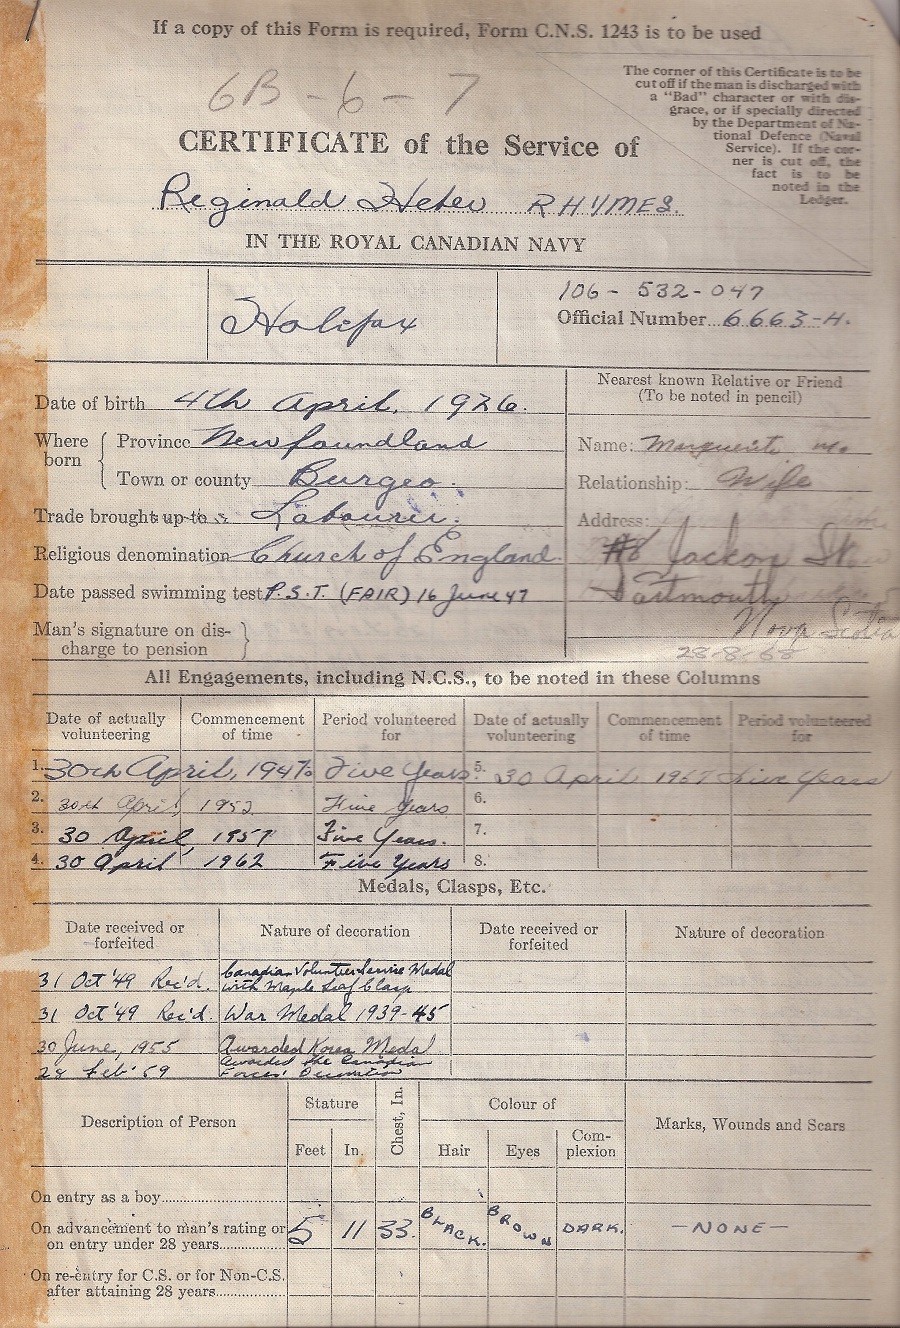 If a copy of this Form is required, Form C.N.S. 1243 is to be used
6B-6-7
The corner of this Certificate is to be
cut off if the man is discharged with
a "Bad" character or with dis-
grace, or if specially directed
by the Department of Na-
tional Defence (Naval
Service). If the cor-
ner is cut off, the
fact is to be
noted in the
Ledger.
CERTIFICATE of the Service of
Reginald RHYMES.
IN THE ROYAL CANADIAN NAVY
Halifax
106-532-047
Official Number 6663-H.
Date of birth 4th April, 1926.
Where born
Province Newfoundland
Town or county Burgeo.
Trade brought up to Labourer.
Religious denomination Church of England.
Date passed swimming test P.S.T. (FAIR) 16 June 47
Man's signature on dis-
charge to pension
Nearest known Relative or Friend
(To be noted in pencil)
Name:
Relationship: Wife
Address:
#8 Jackson St.
Dartmouth
Nova Scotia
28-8-68
All Engagements, including N.C.S., to be noted in these Columns
Date of actually volunteering Commencement of time Period volunteered for Date of actually volunteering Commencement of time Period volunteered for
1. 30th April, 1947 Five Years. 5. 30 April 1967 Five Years
2. 30th April, 1952 Five Years 6.
3. 30 April, 1957 Five Years. 7.
4. 30 April 1962 Five Years 8.
Medals, Clasps, Etc.
Date received or forfeited Nature of decoration Date received or forfeited Nature of decoration
31 Oct '49 Rec'd. Canadian Volunteer Service Medal
with Maple Leaf Clasp
31 Oct '49 Rec'd. War Medal 1939-45
30 June, 1955 Awarded Korea Medal
28 Feb '59 Awarded the Canadian
Forces' Decoration
Description of Person Stature Chest, In. Colour of Marks, Wounds and Scars
Feet In. Hair Eyes Com-
plexion
On entry as a boy
On advancement to man's rating or
on entry under 28 years 5 11 33. BLACK. BROWN DARK. —NONE—
On re-entry for C.S. or for Non-C.S.
after attaining 28 years